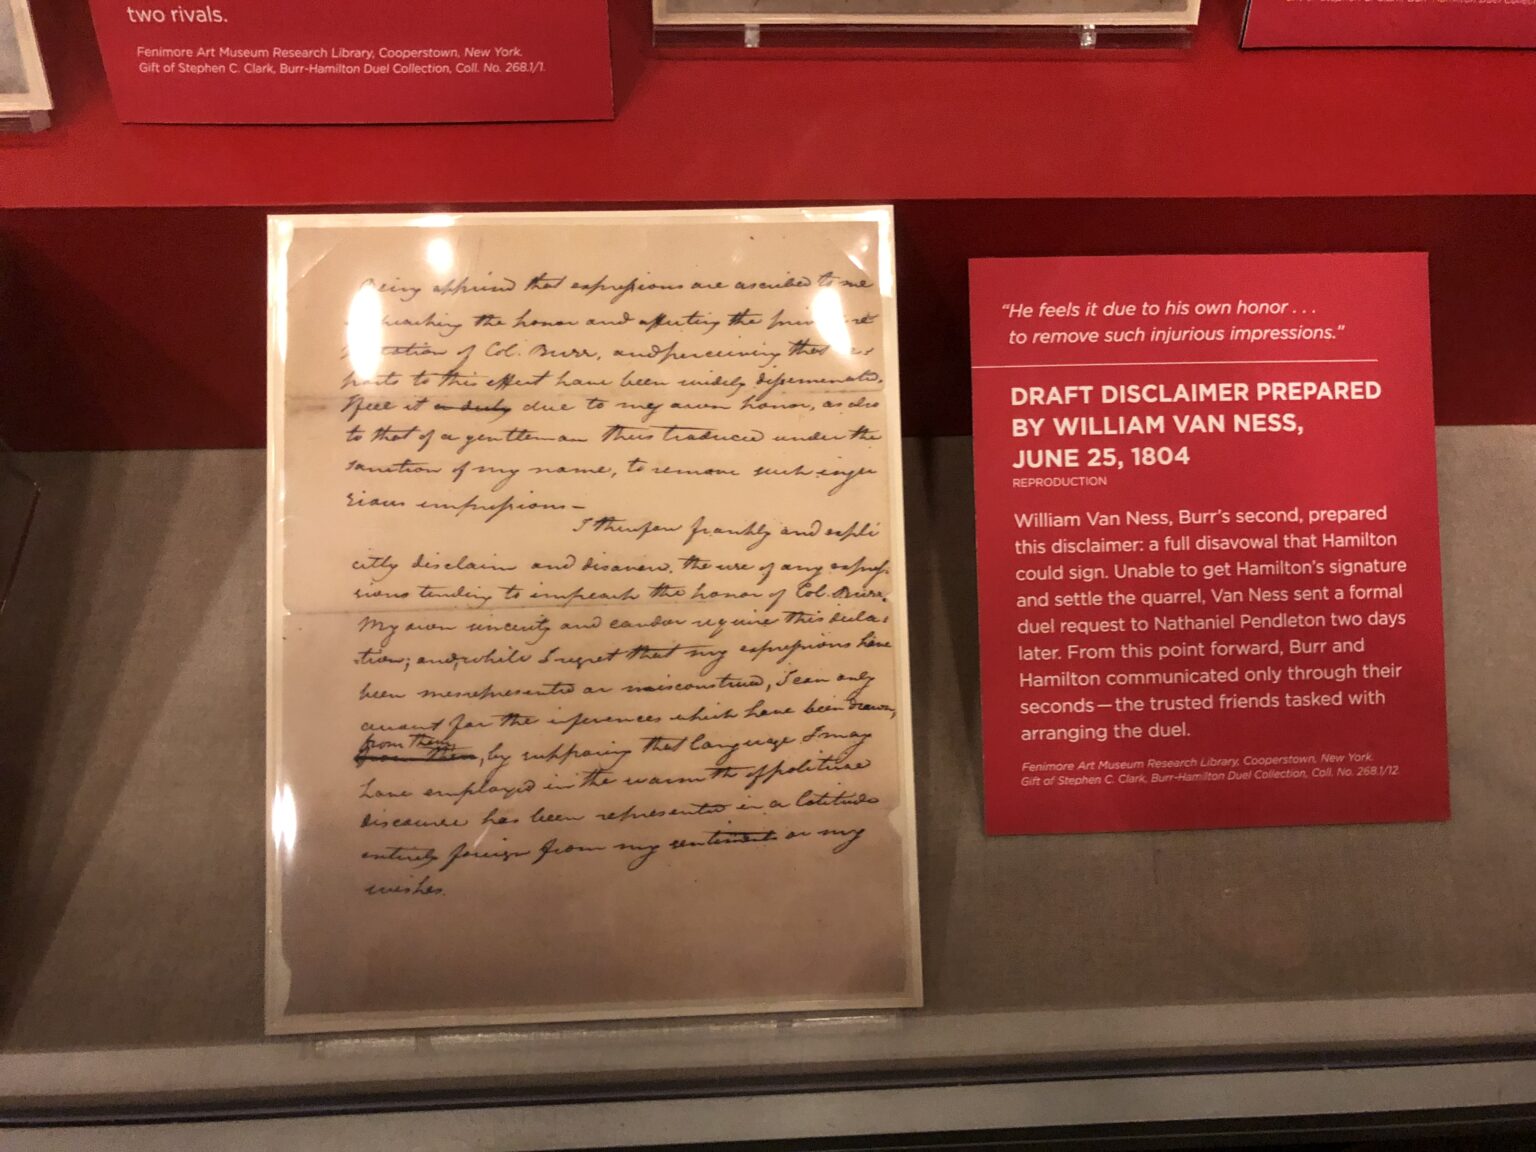 two rivals.
Fenimore Art Museum Research Library, Cooperstown, New York.
Gift of Stephen C. Clark, Burr-Hamilton Duel Collection, Coll. No. 268.1/1.
Being apprised that expressions are ascribed to me
the honor and affecting the
of Col. Burr, and perceiving that
to this effect have been widely disseminated,
I feel it a duty due to my own honor, as also
to that of a gentleman thus traduced under the
sanction of my name, to remove such inju
rious impressions—
I therefore frankly and expli
citly disclaim and disavow, the use of any expres
sions tending to impeach the honor of Col. Burr.
My own sincerity and candor require this decla
tion; and while I regret that my expressions have
been misrepresented or misconstrued, I can only
account for the inferences which have been drawn,
from them
from them, by supposing that language I may
have employed in the warmth of political
discourse has been represented in a latitude
entirely foreign from my sentiments or my
wishes.
“He feels it due to his own honor . . .
to remove such injurious impressions.”
DRAFT DISCLAIMER PREPARED
BY WILLIAM VAN NESS,
JUNE 25, 1804
REPRODUCTION
William Van Ness, Burr’s second, prepared
this disclaimer: a full disavowal that Hamilton
could sign. Unable to get Hamilton’s signature
and settle the quarrel, Van Ness sent a formal
duel request to Nathaniel Pendleton two days
later. From this point forward, Burr and
Hamilton communicated only through their
seconds—the trusted friends tasked with
arranging the duel.
Fenimore Art Museum Research Library, Cooperstown, New York.
Gift of Stephen C. Clark, Burr-Hamilton Duel Collection, Coll. No. 268.1/12.